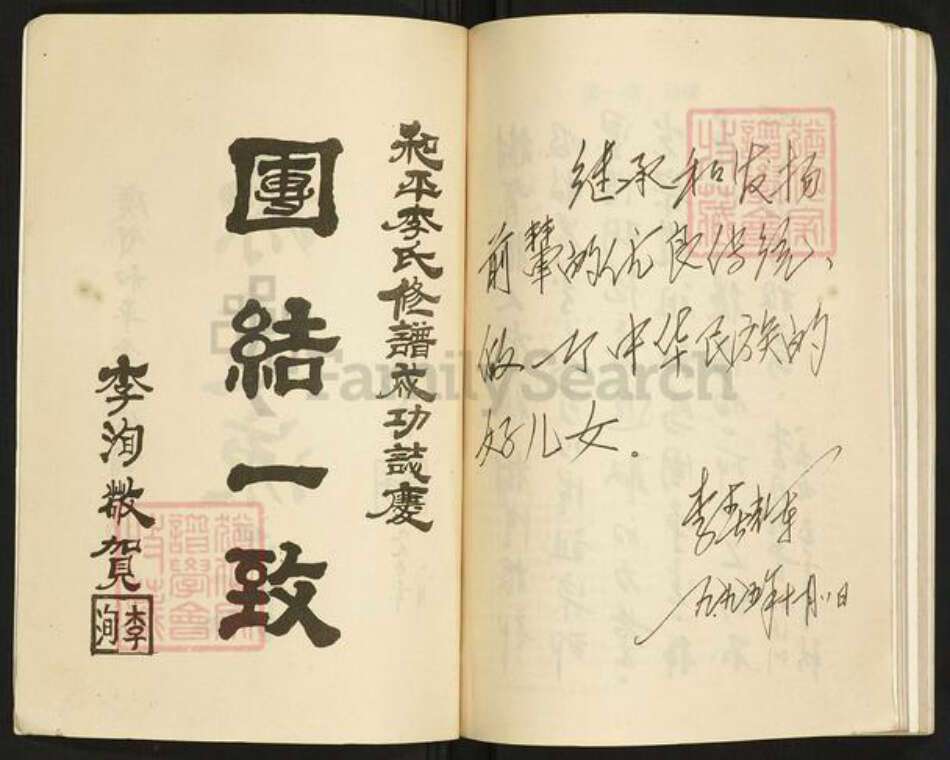 和平李氏修譜成功誌慶
團結一致
李洵敬賀
李洵
继承和发扬
前辈的优良传统、
做一个中华民族的
好儿女。
李
一九九五年十月 日
FamilySearch